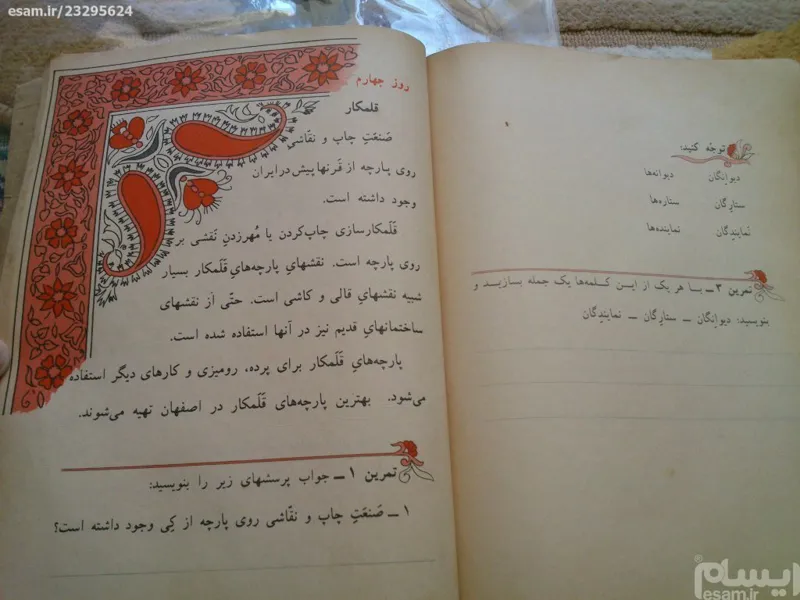 esam.ir/23295624
توجّه کنید:
دیوانگان دیوانه‌ها
ستارگان ستاره‌ها
نمایندگان نماینده‌ها
تمرین ۳ــ با هر یک از این کلمه‌ها یک جمله بسازید و
بنویسید: دیوانگان ــ ستارگان ــ نمایندگان
روز چهارم
قلمکار
صَنعَتِ چاپ و نقّاشی
روی پارچه از قَرنها پیش در ایران
وجود داشته است.
قَلَمکارسازی چاپ‌کردن یا مُهرزدنِ نَقشی بر
روی پارچه است. نقشهایِ پارچه‌هایِ قَلَمکار بسیار
شبیه نقشهای قالی و کاشی است. حتّی از نقشهای
ساختمانهایِ قدیم نیز در آنها استفاده شده است.
پارچه‌هایِ قَلَمکار برای پرده، رومیزی و کارهای دیگر استفاده
می‌شود. بهترین پارچه‌های قَلَمکار در اصفهان تهیه می‌شوند.
تمرین ۱ــ جواب پرسشهای زیر را بنویسید:
۱ــ صَنعَتِ چاپ و نقّاشی روی پارچه از کِی وجود داشته است؟
ایسام
esam.ir